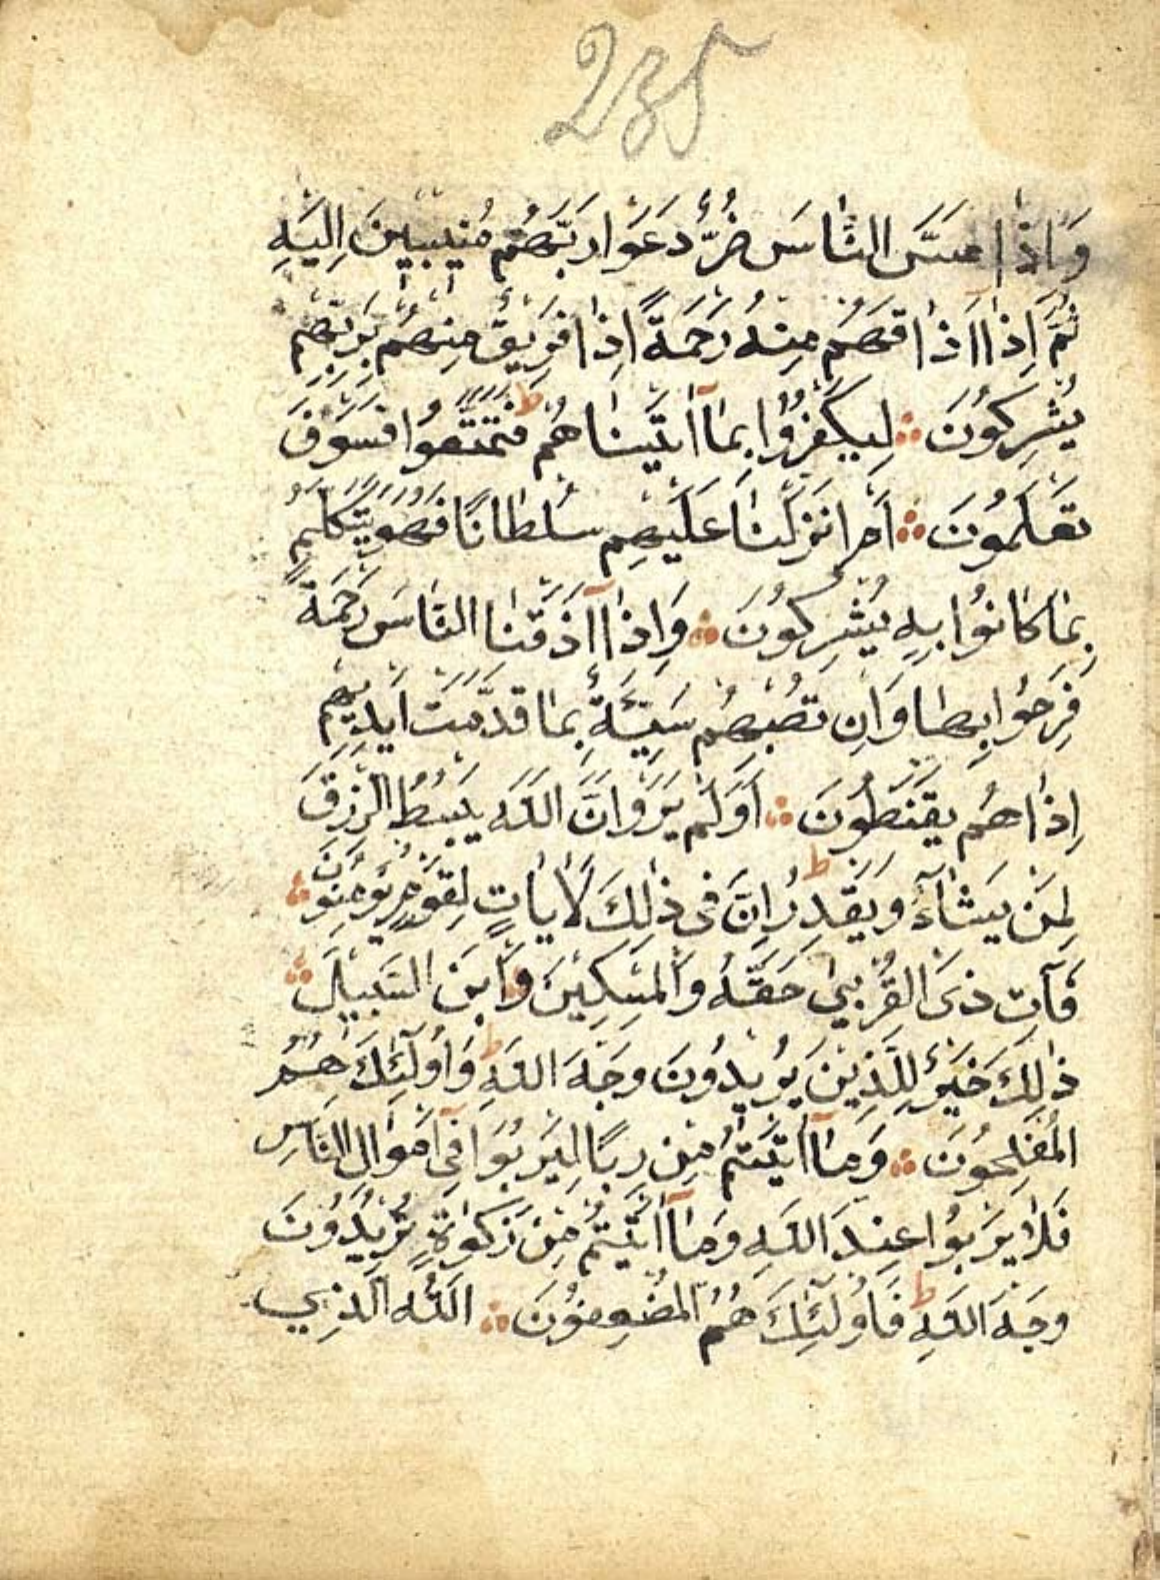 235
وَاِذَا مَسَّ النَّاسَ ضُرٌّ دَعَوْا رَبَّهُمْ مُنِيبِينَ اِلَيْهِ
ثُمَّ اِذَا اَذَاقَهُمْ مِنْهُ رَحْمَةً اِذَا فَرِيقٌ مِنْهُمْ بِرَبِّهِمْ
يُشْرِكُونَ ۞ لِيَكْفُرُوا بِمَا آتَيْنَاهُمْ ط فَتَمَتَّعُوا فَسَوْفَ
تَعْلَمُونَ ۞ اَمْ اَنْزَلْنَا عَلَيْهِمْ سُلْطَانًا فَهُوَ يَتَكَلَّمُ
بِمَا كَانُوا بِهِ يُشْرِكُونَ ۞ وَاِذَا اَذَقْنَا النَّاسَ رَحْمَةً
فَرِحُوا بِهَا وَاِنْ تُصِبْهُمْ سَيِّئَةٌ بِمَا قَدَّمَتْ اَيْدِيهِمْ
اِذَا هُمْ يَقْنَطُونَ ۞ اَوَلَمْ يَرَوْا اَنَّ اللّٰهَ يَبْسُطُ الرِّزْقَ
لِمَنْ يَشَآءُ وَيَقْدِرُ ط اِنَّ فِى ذٰلِكَ لَاٰيَاتٍ لِقَوْمٍ يُؤْمِنُونَ ۞
فَآتِ ذَى الْقُرْبىٰ حَقَّهُ وَالْمِسْكِينَ وَابْنَ السَّبِيلِ ۞
ذٰلِكَ خَيْرٌ لِلَّذِينَ يُرِيدُونَ وَجْهَ اللّٰهِ ط وَاُولٰٓئِكَ هُمُ
الْمُفْلِحُونَ ۞ وَمَآ اٰتَيْتُمْ مِنْ رِبًا لِيَرْبُوَا فِىٓ اَمْوَالِ النَّاسِ
فَلَا يَرْبُوا عِنْدَ اللّٰهِ وَمَآ اٰتَيْتُمْ مِنْ زَكٰوةٍ تُرِيدُونَ
وَجْهَ اللّٰهِ ط فَاُولٰٓئِكَ هُمُ الْمُضْعِفُونَ ۞ اَللّٰهُ الَّذِي